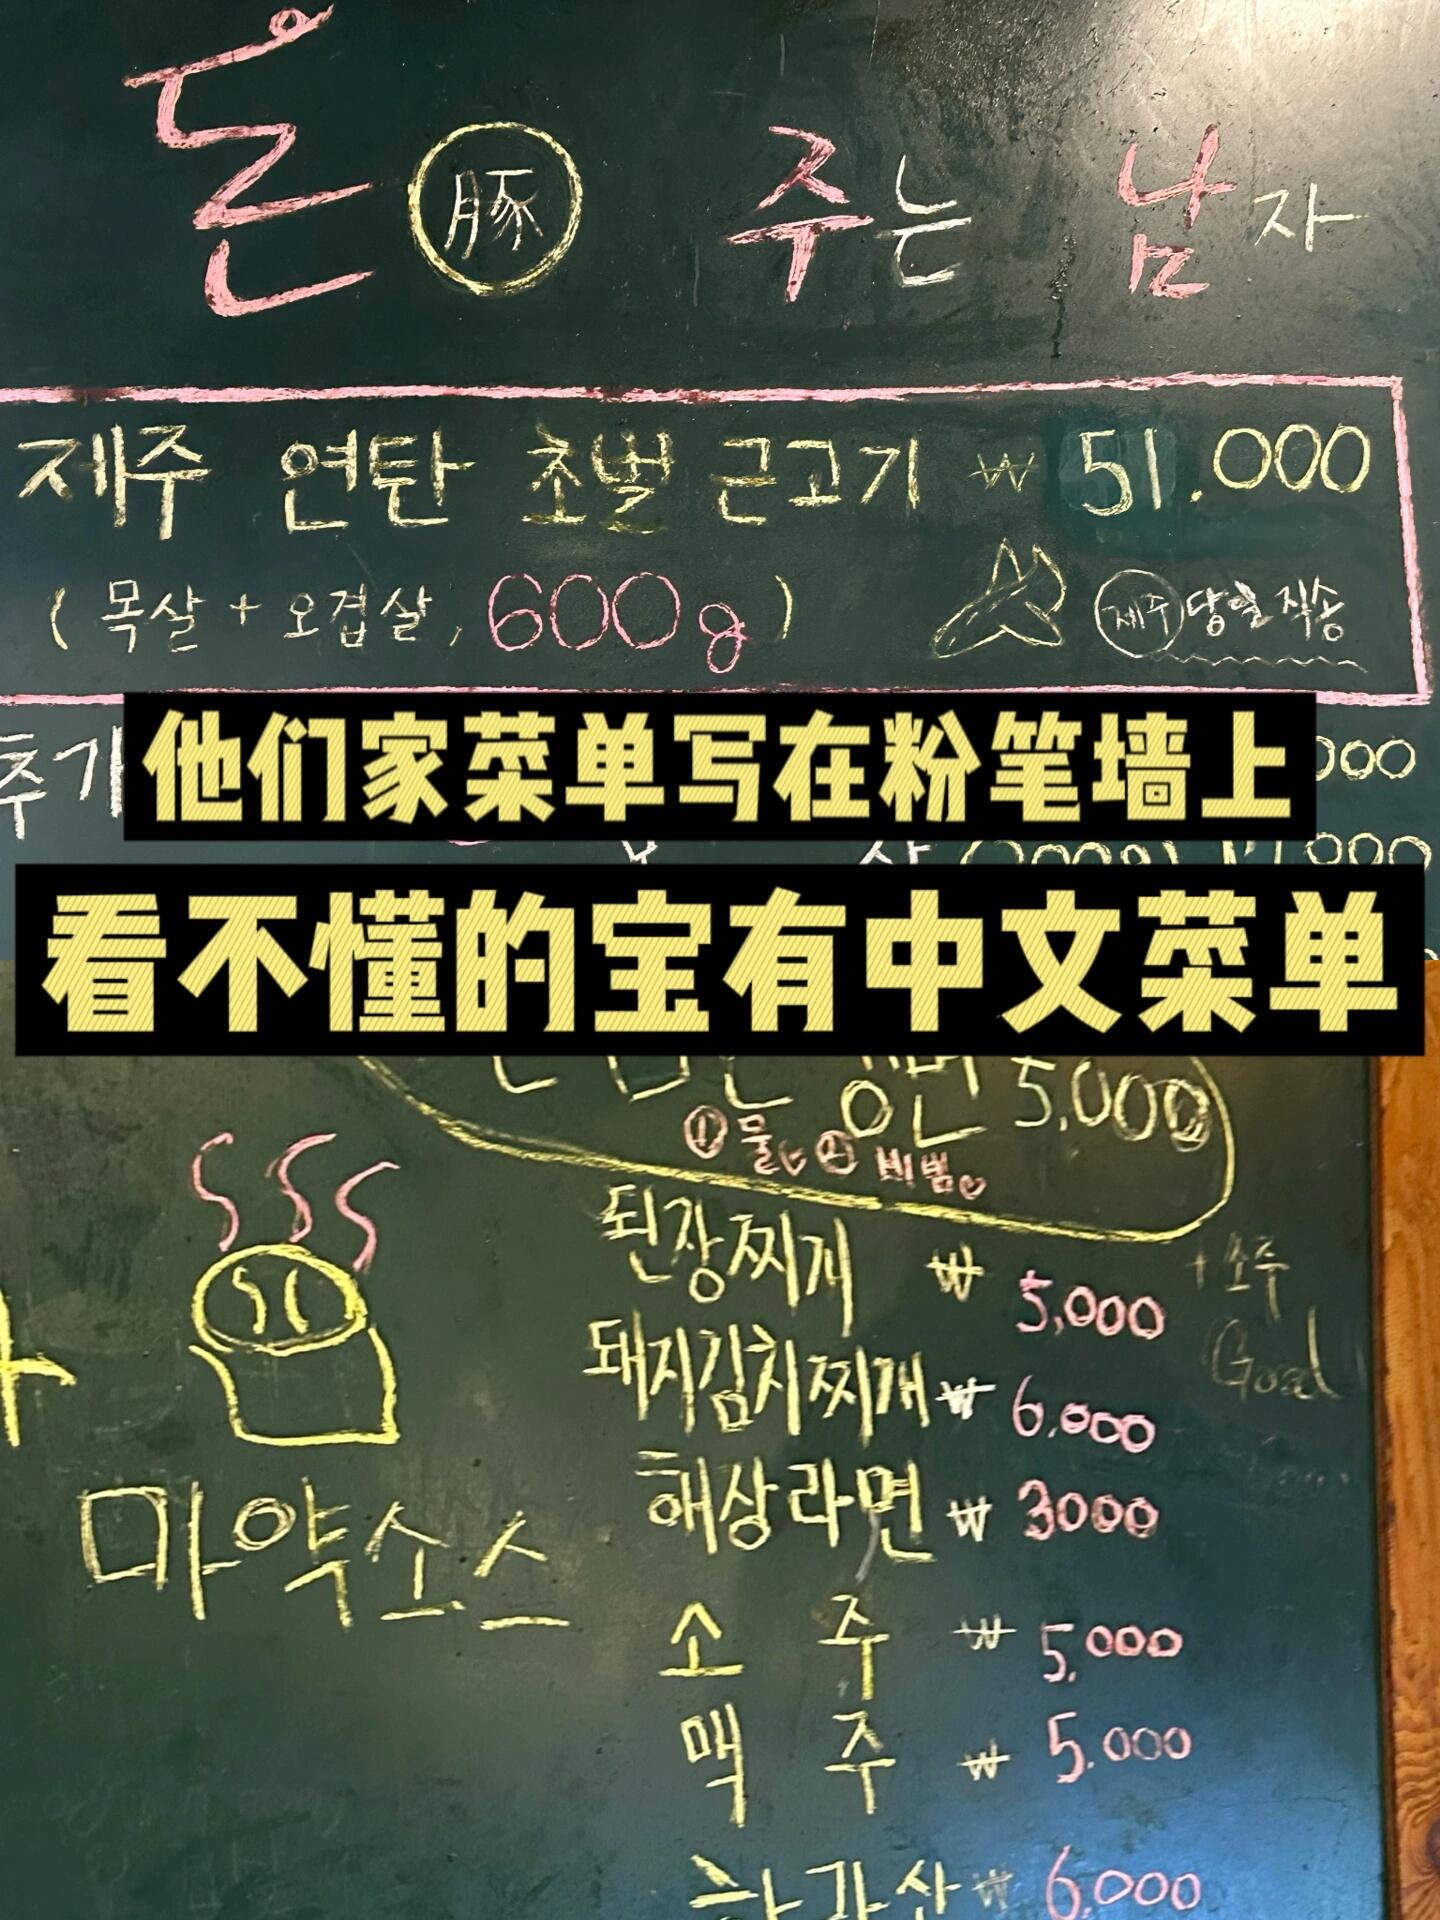 돈 豚 주는 남자
제주 연탄 초벌 근고기 ₩ 51.000
(목살 + 오겹살, 600g) 제주 당일 직송
추가
他们家菜单写在粉笔墙上
看不懂的宝有中文菜单
5,000
① 물 ② 비빔
된장찌개 ₩ 5,000
+ 소주
돼지김치찌개 ₩ 6,000
Goal
해상라면 ₩ 3000
마약소스
소주 ₩ 5,000
맥주 ₩ 5.000
한라산 ₩ 6,000